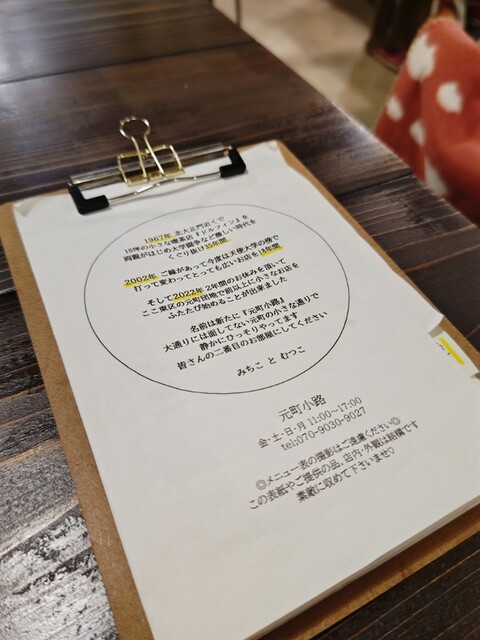 1967年 北大正門近くで
10坪の小さな喫茶店『ドルフィン』を
両親がはじめ大学闘争など難しい時代を
くぐり抜け35年間
2002年 ご縁があって今度は天使大学の傍で
打って変わってとっても広いお店を18年間
そして2022年 2年間のお休みを頂いて
ここ東区の元町団地で前以上に小さなお店を
ふたたび始めることが出来ました
名前は新たに『元町小路』
大通りには面してない元町の小さな通りで
静かにひっそりやってます
皆さんの二番目のお部屋にしてください
みちこ と むつこ
元町小路
金･土･日･月 11:00~17:00
tel:070-9030-9027
◎メニュー表の撮影はご遠慮ください◎
この表紙やご提供の品、店内･外観は結構です
素敵に収めて下さいませ♡